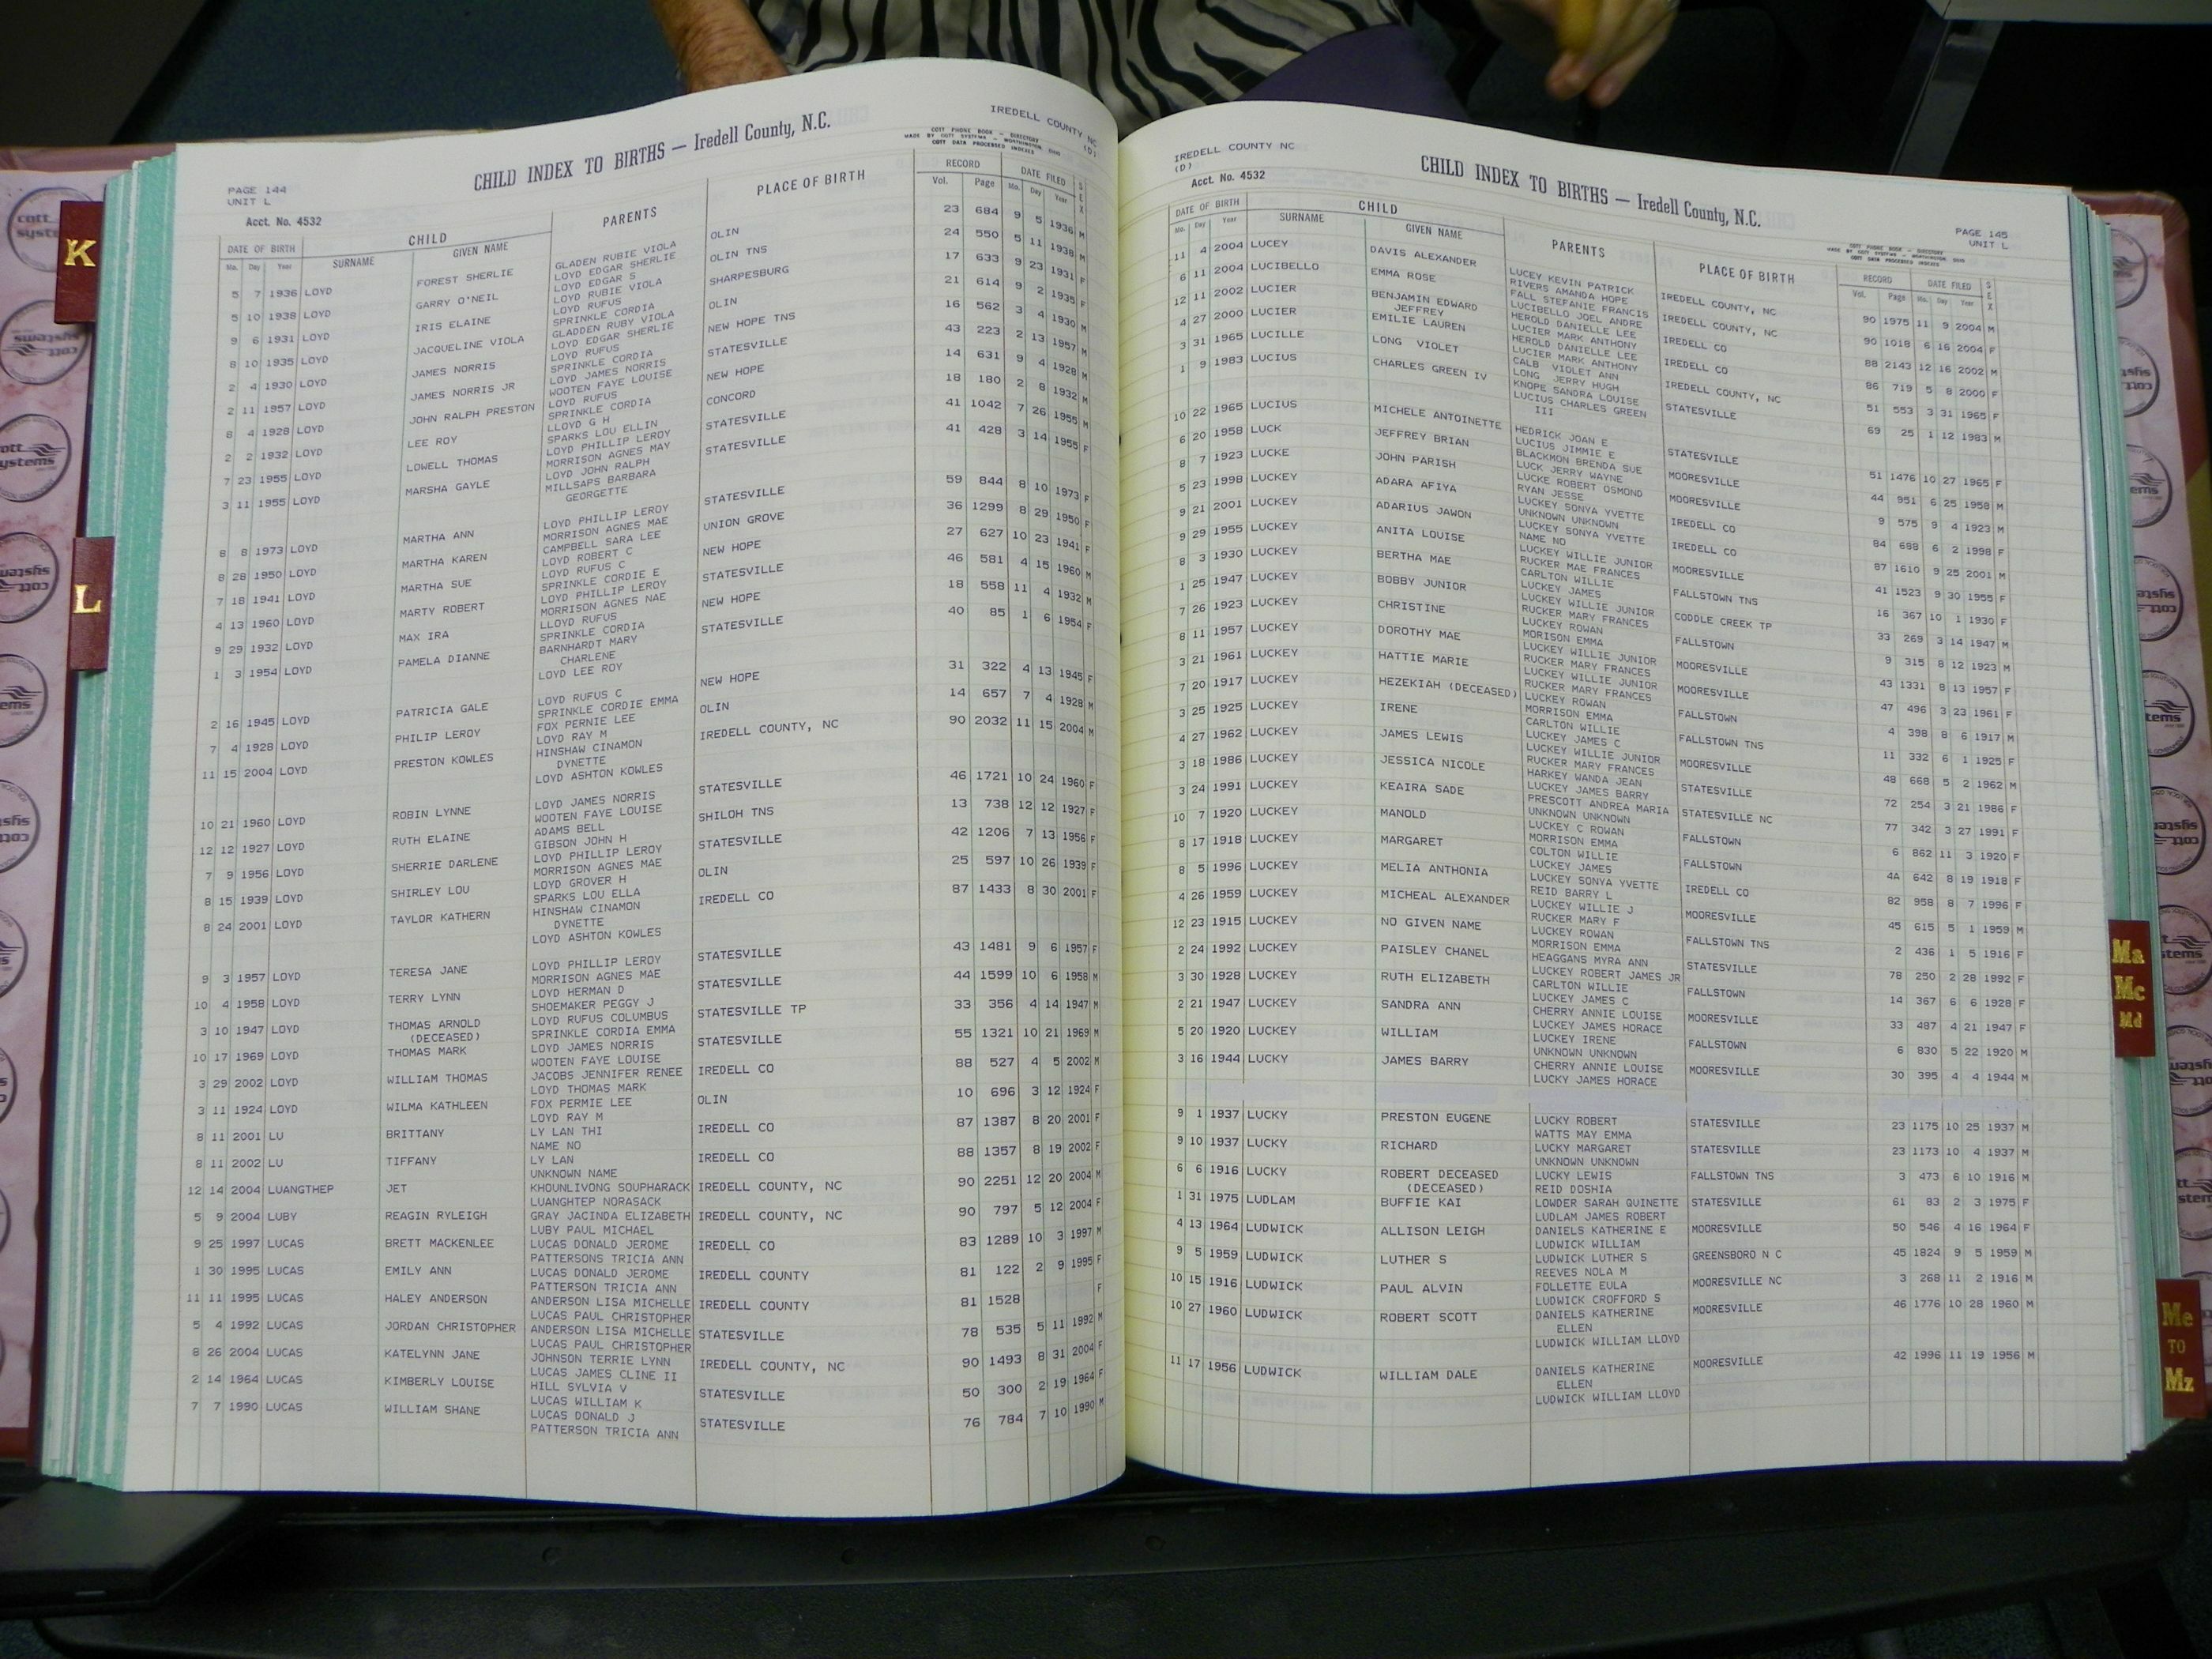 IREDELL COUNTY NC
(D)
CHILD INDEX TO BIRTHS — Iredell County, N.C.
COTT PHONE BOOK - DIRECTORY
MADE BY COTT SYSTEMS - WORTHINGTON, OHIO
COTT DATA PROCESSED INDEXES
PAGE 144
UNIT L
Acct. No. 4532
DATE OF BIRTH CHILD PARENTS PLACE OF BIRTH RECORD DATE FILED SEX
Mo. Day Year SURNAME GIVEN NAME Vol. Page Mo. Day Year
5 7 1936 LOYD FOREST SHERLIE GLADEN RUBIE VIOLA OLIN 23 684 9 5 1936 M
LOYD EDGAR SHERLIE
5 10 1938 LOYD GARRY O'NEIL LOYD EDGAR S OLIN TNS 24 550 5 11 1938 M
LOYD RUBIE VIOLA
9 6 1931 LOYD IRIS ELAINE LOYD RUFUS SHARPESBURG 17 633 9 23 1931 F
SPRINKLE CORDIA
8 10 1935 LOYD JACQUELINE VIOLA GLADDEN RUBY VIOLA OLIN 21 614 9 2 1935 F
LOYD EDGAR SHERLIE
2 4 1930 LOYD JAMES NORRIS LOYD RUFUS NEW HOPE TNS 16 562 3 4 1930 M
SPRINKLE CORDIA
2 11 1957 LOYD JAMES NORRIS JR LOYD JAMES NORRIS STATESVILLE 43 223 2 13 1957 M
WOOTEN FAYE LOUISE
8 4 1928 LOYD JOHN RALPH PRESTON LOYD RUFUS NEW HOPE 14 631 9 4 1928 M
SPRINKLE CORDIA
2 2 1932 LOYD LEE ROY LLOYD G H CONCORD 18 180 2 8 1932 M
SPARKS LOU ELLIN
7 23 1955 LOYD LOWELL THOMAS LOYD PHILLIP LEROY STATESVILLE 41 1042 7 26 1955 M
MORRISON AGNES MAY
3 11 1955 LOYD MARSHA GAYLE LOYD JOHN RALPH STATESVILLE 41 428 3 14 1955 F
MILLSAPS BARBARA
GEORGETTE
8 8 1973 LOYD MARTHA ANN LOYD PHILLIP LEROY STATESVILLE 59 844 8 10 1973 F
MORRISON AGNES MAE
8 28 1950 LOYD MARTHA KAREN CAMPBELL SARA LEE UNION GROVE 36 1299 8 29 1950 F
LOYD ROBERT C
7 18 1941 LOYD MARTHA SUE LOYD RUFUS C NEW HOPE 27 627 10 23 1941 F
SPRINKLE CORDIE E
4 13 1960 LOYD MARTY ROBERT LOYD PHILLIP LEROY STATESVILLE 46 581 4 15 1960 M
MORRISON AGNES NAE
9 29 1932 LOYD MAX IRA LLOYD RUFUS NEW HOPE 18 558 11 4 1932 M
SPRINKLE CORDIA
1 3 1954 LOYD PAMELA DIANNE BARNHARDT MARY STATESVILLE 40 85 1 6 1954 F
CHARLENE
LOYD LEE ROY
2 16 1945 LOYD PATRICIA GALE LOYD RUFUS C NEW HOPE 31 322 4 13 1945 F
SPRINKLE CORDIE EMMA
7 4 1928 LOYD PHILIP LEROY FOX PERNIE LEE OLIN 14 657 7 4 1928 M
LOYD RAY M
11 15 2004 LOYD PRESTON KOWLES HINSHAW CINAMON IREDELL COUNTY, NC 90 2032 11 15 2004 M
DYNETTE
LOYD ASHTON KOWLES
10 21 1960 LOYD ROBIN LYNNE LOYD JAMES NORRIS STATESVILLE 46 1721 10 24 1960 F
WOOTEN FAYE LOUISE
12 12 1927 LOYD RUTH ELAINE ADAMS BELL SHILOH TNS 13 738 12 12 1927 F
GIBSON JOHN H
7 9 1956 LOYD SHERRIE DARLENE LOYD PHILLIP LEROY STATESVILLE 42 1206 7 13 1956 F
MORRISON AGNES MAE
8 15 1939 LOYD SHIRLEY LOU LOYD GROVER H OLIN 25 597 10 26 1939 F
SPARKS LOU ELLA
8 24 2001 LOYD TAYLOR KATHERN HINSHAW CINAMON IREDELL CO 87 1433 8 30 2001 F
DYNETTE
LOYD ASHTON KOWLES
9 3 1957 LOYD TERESA JANE LOYD PHILLIP LEROY STATESVILLE 43 1481 9 6 1957 F
MORRISON AGNES MAE
10 4 1958 LOYD TERRY LYNN LOYD HERMAN D STATESVILLE 44 1599 10 6 1958 M
SHOEMAKER PEGGY J
3 10 1947 LOYD THOMAS ARNOLD LOYD RUFUS COLUMBUS STATESVILLE TP 33 356 4 14 1947 M
(DECEASED) SPRINKLE CORDIA EMMA
10 17 1969 LOYD THOMAS MARK LOYD JAMES NORRIS STATESVILLE 55 1321 10 21 1969 M
WOOTEN FAYE LOUISE
3 29 2002 LOYD WILLIAM THOMAS JACOBS JENNIFER RENEE IREDELL CO 88 527 4 5 2002 M
LOYD THOMAS MARK
3 11 1924 LOYD WILMA KATHLEEN FOX PERMIE LEE OLIN 10 696 3 12 1924 F
LOYD RAY M
8 11 2001 LU BRITTANY LY LAN THI IREDELL CO 87 1387 8 20 2001 F
NAME NO
8 11 2002 LU TIFFANY LY LAN IREDELL CO 88 1357 8 19 2002 F
UNKNOWN NAME
12 14 2004 LUANGTHEP JET KHOUNLIVONG SOUPHARACK IREDELL COUNTY, NC 90 2251 12 20 2004 M
LUANGHTEP NORASACK
5 9 2004 LUBY REAGIN RYLEIGH GRAY JACINDA ELIZABETH IREDELL COUNTY, NC 90 797 5 12 2004 F
LUBY PAUL MICHAEL
9 25 1997 LUCAS BRETT MACKENLEE LUCAS DONALD JEROME IREDELL CO 83 1289 10 3 1997 M
PATTERSONS TRICIA ANN
1 30 1995 LUCAS EMILY ANN LUCAS DONALD JEROME IREDELL COUNTY 81 122 2 9 1995 F
PATTERSON TRICIA ANN
11 11 1995 LUCAS HALEY ANDERSON ANDERSON LISA MICHELLE IREDELL COUNTY 81 1528 F
LUCAS PAUL CHRISTOPHER
5 4 1992 LUCAS JORDAN CHRISTOPHER ANDERSON LISA MICHELLE STATESVILLE 78 535 5 11 1992 M
LUCAS PAUL CHRISTOPHER
8 26 2004 LUCAS KATELYNN JANE JOHNSON TERRIE LYNN IREDELL COUNTY, NC 90 1493 8 31 2004 F
LUCAS JAMES CLINE II
2 14 1964 LUCAS KIMBERLY LOUISE HILL SYLVIA V STATESVILLE 50 300 2 19 1964 F
LUCAS WILLIAM K
7 7 1990 LUCAS WILLIAM SHANE LUCAS DONALD J STATESVILLE 76 784 7 10 1990 M
PATTERSON TRICIA ANN
IREDELL COUNTY NC
(D)
Acct. No. 4532
CHILD INDEX TO BIRTHS — Iredell County, N.C.
PAGE 145
UNIT L
COTT PHONE BOOK - DIRECTORY
MADE BY COTT SYSTEMS - WORTHINGTON, OHIO
COTT DATA PROCESSED INDEXES
DATE OF BIRTH CHILD PARENTS PLACE OF BIRTH RECORD DATE FILED SEX
Mo. Day Year SURNAME GIVEN NAME Vol. Page Mo. Day Year
11 4 2004 LUCEY DAVIS ALEXANDER LUCEY KEVIN PATRICK IREDELL COUNTY, NC 90 1975 11 9 2004 M
RIVERS AMANDA HOPE
6 11 2004 LUCIBELLO EMMA ROSE FALL STEFANIE FRANCIS IREDELL COUNTY, NC 90 1018 6 16 2004 F
LUCIBELLO JOEL ANDRE
12 11 2002 LUCIER BENJAMIN EDWARD HEROLD DANIELLE LEE IREDELL CO 88 2143 12 16 2002 M
JEFFREY LUCIER MARK ANTHONY
4 27 2000 LUCIER EMILIE LAUREN HEROLD DANIELLE LEE IREDELL COUNTY, NC 86 719 5 8 2000 F
LUCIER MARK ANTHONY
3 31 1965 LUCILLE LONG VIOLET CALB VIOLET ANN STATESVILLE 51 553 3 31 1965 F
LONG JERRY HUGH
1 9 1983 LUCIUS CHARLES GREEN IV KNOPE SANDRA LOUISE STATESVILLE 69 25 1 12 1983 M
LUCIUS CHARLES GREEN
III
10 22 1965 LUCIUS MICHELE ANTOINETTE HEDRICK JOAN E MOORESVILLE 51 1476 10 27 1965 F
LUCIUS JIMMIE E
6 20 1958 LUCK JEFFREY BRIAN BLACKMON BRENDA SUE MOORESVILLE 44 951 6 25 1958 M
LUCK JERRY WAYNE
8 7 1923 LUCKE JOHN PARISH LUCKE ROBERT OSMOND IREDELL CO 9 575 9 4 1923 M
RYAN JESSE
5 23 1998 LUCKEY ADARA AFIYA LUCKEY SONYA YVETTE IREDELL CO 84 688 6 2 1998 F
UNKNOWN UNKNOWN
9 21 2001 LUCKEY ADARIUS JAWON LUCKEY SONYA YVETTE MOORESVILLE 87 1610 9 25 2001 M
NAME NO
9 29 1955 LUCKEY ANITA LOUISE LUCKEY WILLIE JUNIOR FALLSTOWN TNS 41 1523 9 30 1955 F
RUCKER MAE FRANCES
8 3 1930 LUCKEY BERTHA MAE CARLTON WILLIE CODDLE CREEK TP 16 367 10 1 1930 F
LUCKEY JAMES
1 25 1947 LUCKEY BOBBY JUNIOR LUCKEY WILLIE JUNIOR FALLSTOWN 33 269 3 14 1947 M
RUCKER MARY FRANCES
7 26 1923 LUCKEY CHRISTINE LUCKEY ROWAN MOORESVILLE 9 315 8 12 1923 M
MORISON EMMA
8 11 1957 LUCKEY DOROTHY MAE LUCKEY WILLIE JUNIOR MOORESVILLE 43 1331 8 13 1957 F
RUCKER MARY FRANCES
3 21 1961 LUCKEY HATTIE MARIE LUCKEY WILLIE JUNIOR FALLSTOWN 47 496 3 23 1961 F
RUCKER MARY FRANCES
7 20 1917 LUCKEY HEZEKIAH (DECEASED) LUCKEY ROWAN FALLSTOWN TNS 4 398 8 6 1917 M
MORRISON EMMA
3 25 1925 LUCKEY IRENE CARLTON WILLIE MOORESVILLE 11 332 6 1 1925 F
LUCKEY JAMES C
4 27 1962 LUCKEY JAMES LEWIS LUCKEY WILLIE JUNIOR STATESVILLE 48 668 5 2 1962 M
RUCKER MARY FRANCES
3 18 1986 LUCKEY JESSICA NICOLE HARKEY WANDA JEAN STATESVILLE NC 72 254 3 21 1986 F
LUCKEY JAMES BARRY
3 24 1991 LUCKEY KEAIRA SADE PRESCOTT ANDREA MARIA 77 342 3 27 1991 F
UNKNOWN UNKNOWN
10 7 1920 LUCKEY MANOLD LUCKEY C ROWAN FALLSTOWN 6 862 11 3 1920 F
MORRISON EMMA
8 17 1918 LUCKEY MARGARET COLTON WILLIE FALLSTOWN 4A 642 8 19 1918 F
LUCKEY JAMES
8 5 1996 LUCKEY MELIA ANTHONIA LUCKEY SONYA YVETTE IREDELL CO 82 958 8 7 1996 F
REID BARRY L
4 26 1959 LUCKEY MICHEAL ALEXANDER LUCKEY WILLIE J MOORESVILLE 45 615 5 1 1959 M
RUCKER MARY F
12 23 1915 LUCKEY NO GIVEN NAME LUCKEY ROWAN FALLSTOWN TNS 2 436 1 5 1916 F
MORRISON EMMA
2 24 1992 LUCKEY PAISLEY CHANEL HEAGGANS MYRA ANN STATESVILLE 78 250 2 28 1992 F
LUCKEY ROBERT JAMES JR
3 30 1928 LUCKEY RUTH ELIZABETH CARLTON WILLIE FALLSTOWN 14 367 6 6 1928 F
LUCKEY JAMES C
2 21 1947 LUCKEY SANDRA ANN CHERRY ANNIE LOUISE MOORESVILLE 33 487 4 21 1947 F
LUCKEY JAMES HORACE
5 20 1920 LUCKEY WILLIAM LUCKEY IRENE FALLSTOWN 6 830 5 22 1920 M
UNKNOWN UNKNOWN
3 16 1944 LUCKY JAMES BARRY CHERRY ANNIE LOUISE MOORESVILLE 30 395 4 4 1944 M
LUCKY JAMES HORACE
9 1 1937 LUCKY PRESTON EUGENE LUCKY ROBERT STATESVILLE 23 1175 10 25 1937 M
WATTS MAY EMMA
9 10 1937 LUCKY RICHARD LUCKY MARGARET STATESVILLE 23 1173 10 4 1937 M
UNKNOWN UNKNOWN
6 6 1916 LUCKY ROBERT DECEASED LUCKY LEWIS FALLSTOWN TNS 3 473 6 10 1916 M
(DECEASED) REID DOSHIA
1 31 1975 LUDLAM BUFFIE KAI LOWDER SARAH QUINETTE STATESVILLE 61 83 2 3 1975 F
LUDLAM JAMES ROBERT
4 13 1964 LUDWICK ALLISON LEIGH DANIELS KATHERINE E MOORESVILLE 50 546 4 16 1964 F
LUDWICK WILLIAM
9 5 1959 LUDWICK LUTHER S LUDWICK LUTHER S GREENSBORO N C 45 1824 9 5 1959 M
REEVES NOLA M
10 15 1916 LUDWICK PAUL ALVIN FOLLETTE EULA MOORESVILLE NC 3 268 11 2 1916 M
LUDWICK CROFFORD S
10 27 1960 LUDWICK ROBERT SCOTT DANIELS KATHERINE MOORESVILLE 46 1776 10 28 1960 M
ELLEN
LUDWICK WILLIAM LLOYD
11 17 1956 LUDWICK WILLIAM DALE DANIELS KATHERINE MOORESVILLE 42 1996 11 19 1956 M
ELLEN
LUDWICK WILLIAM LLOYD
K
L
Ma
Mc
Md
Me
TO
Mz
cott
systems